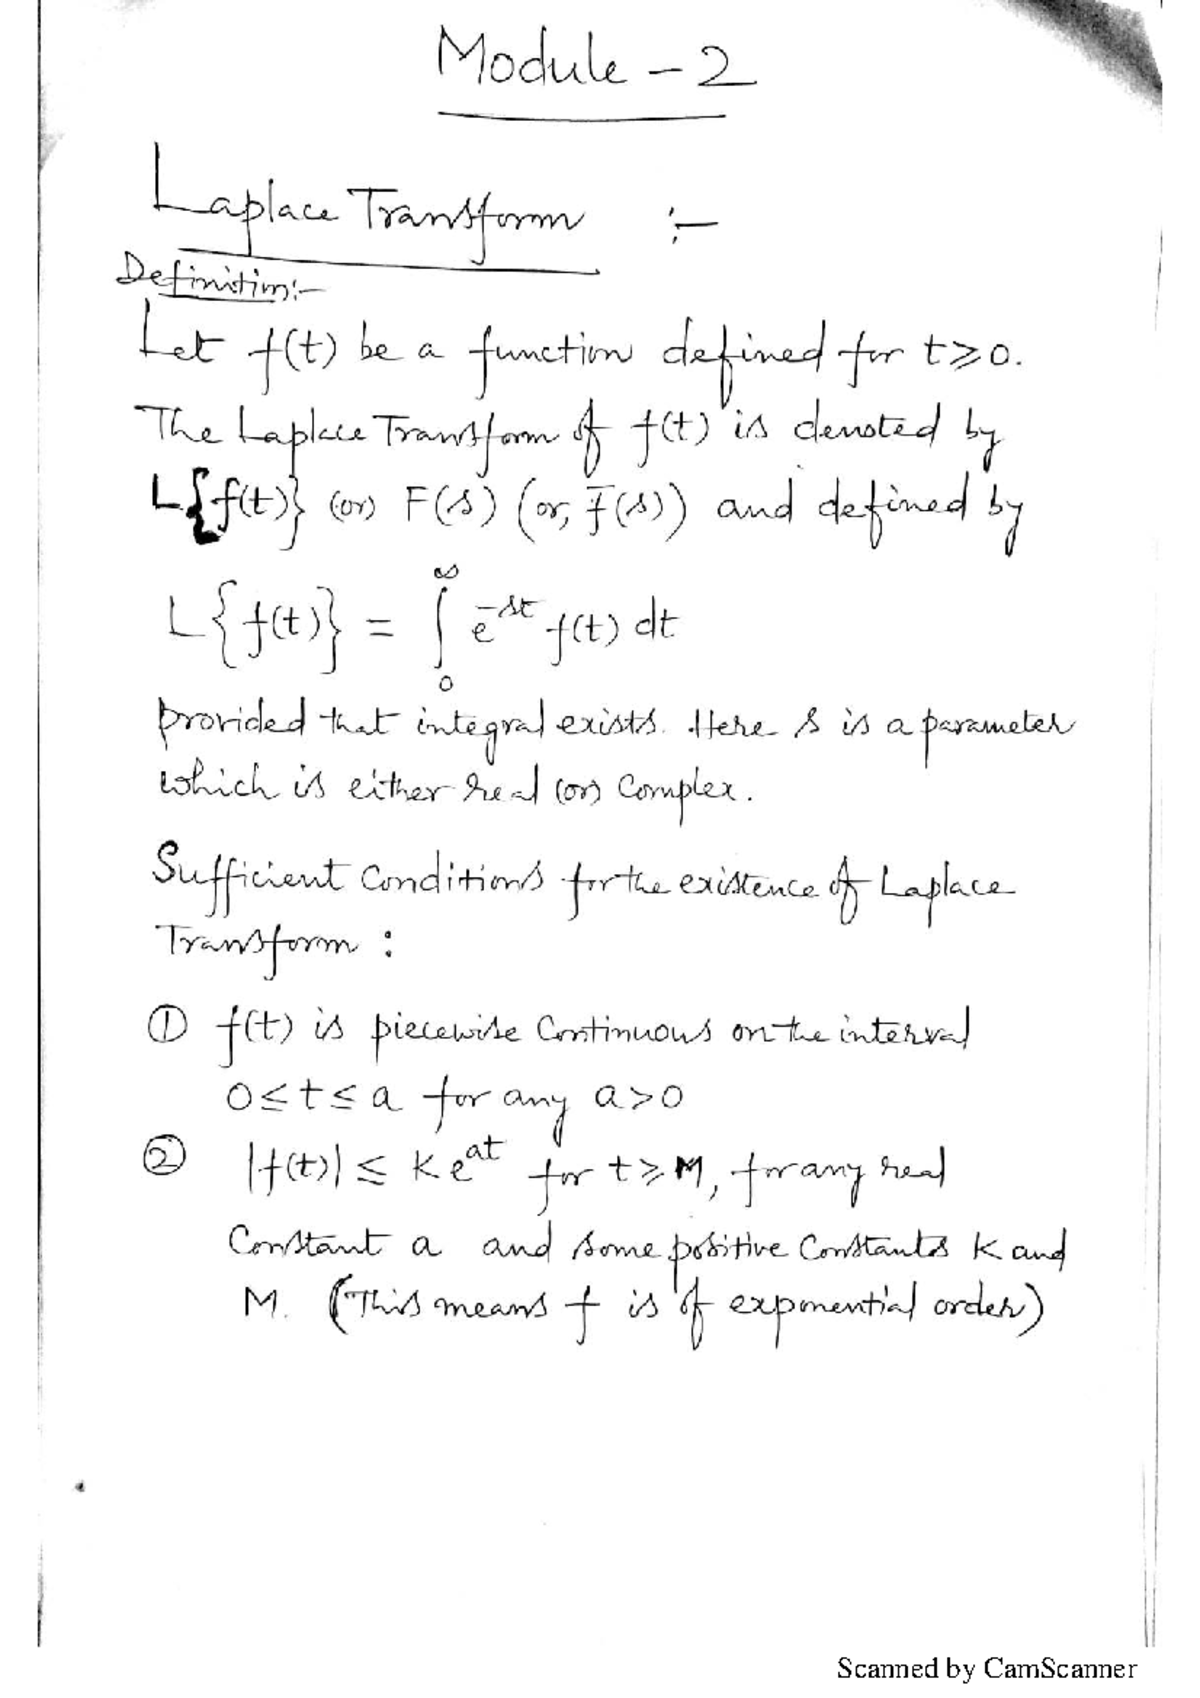 Module - 2
Laplace Transform :-
Definition:-
Let f(t) be a function defined for t ≥ 0.
The Laplace Transform of f(t) is denoted by
L{f(t)} (or) F(s) (or, f̅(s)) and defined by
L{f(t)} = ∫₀^∞ e^{-st} f(t) dt
provided that integral exists. Here s is a parameter
which is either real (or) complex.
Sufficient Conditions for the existence of Laplace
Transform :
① f(t) is piecewise continuous on the interval
0 ≤ t ≤ a for any a > 0
② |f(t)| ≤ K e^{at} for t ≥ M, for any real
constant a and some positive constants K and
M. (This means f is of exponential order)
Scanned by CamScanner